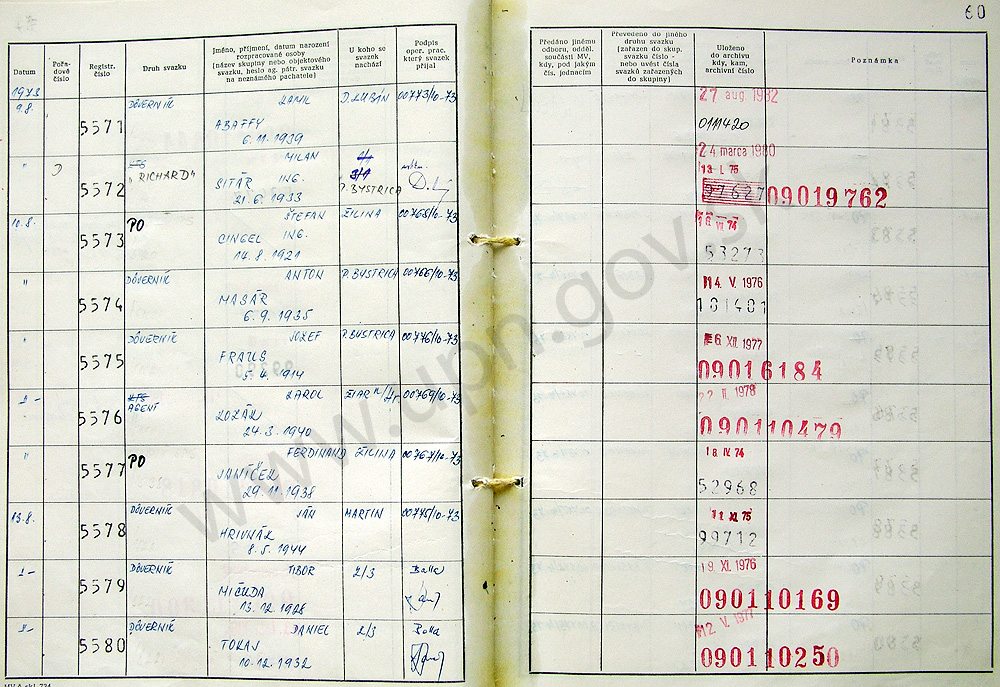 60
Datum
Pořa-
dové
číslo
Registr.
číslo
Druh svazku
Jméno, příjmení, datum narození
rozpracované osoby
(název skupiny nebo objektového
svazku, heslo ag. pátr. svazku
na neznámého pachatele)
U koho se
svazek
nachází
Podpis
oper. prac.
který svazek
přijal
Předáno jinému
odboru, odděl.
součásti MV,
kdy, pod jakým
čís. jednacím
Převedeno do jiného
druhu svazku
(zařazen do skup.
svazku číslo -
nebo uvést čísla
svazků zařazených
do skupiny)
Uloženo
do archivu
kdy, kam,
archivní číslo
Poznámka
1973
9.8. 5571 DÔVERNÍK KAMIL D. KUBÍN 00773/10-73 27 aug. 1982
ABAFFY 0111420
6.11.1939
" 5572 "RICHARD" MILAN 24 marca 1980
SITÁR ING. P. BYSTRICA 13. I. 75
21.6.1933 97627 09019762
10.8. 5573 PO ŠTEFAN ŽILINA 00768/10-73
CINGEL ING. 53273
14.8.1921
" 5574 DÔVERNÍK ANTON P. BYSTRICA 00766/10-73 14. V. 1976
MASÁR 101401
6.9.1935
" 5575 DÔVERNÍK JOZEF P. BYSTRICA 00776/10-73 6. XII. 1977
FRAUS 09016184
5.4.1914
5576 AGENT KAROL 00769/10-73 22. II. 1978
KOZÁK 090110479
24.3.1940
" 5577 PO FERDINAND ŽILINA 00767/10-73 18. IV. 74
JANÍČEK 52968
29.11.1938
13.8. 5578 DÔVERNÍK JÁN MARTIN 00775/10-73 11. XI. 75
HRIVNÁK 99712
8.5.1944
5579 DÔVERNÍK TIBOR 2/3 Balla 19. XI. 1976
MIČUDA 090110169
13.12.1928
5580 DÔVERNÍK DANIEL 2/3 Balla 12. V. 1977
TOKAJ 090110250
10.12.1932
www.upn.gov.sk